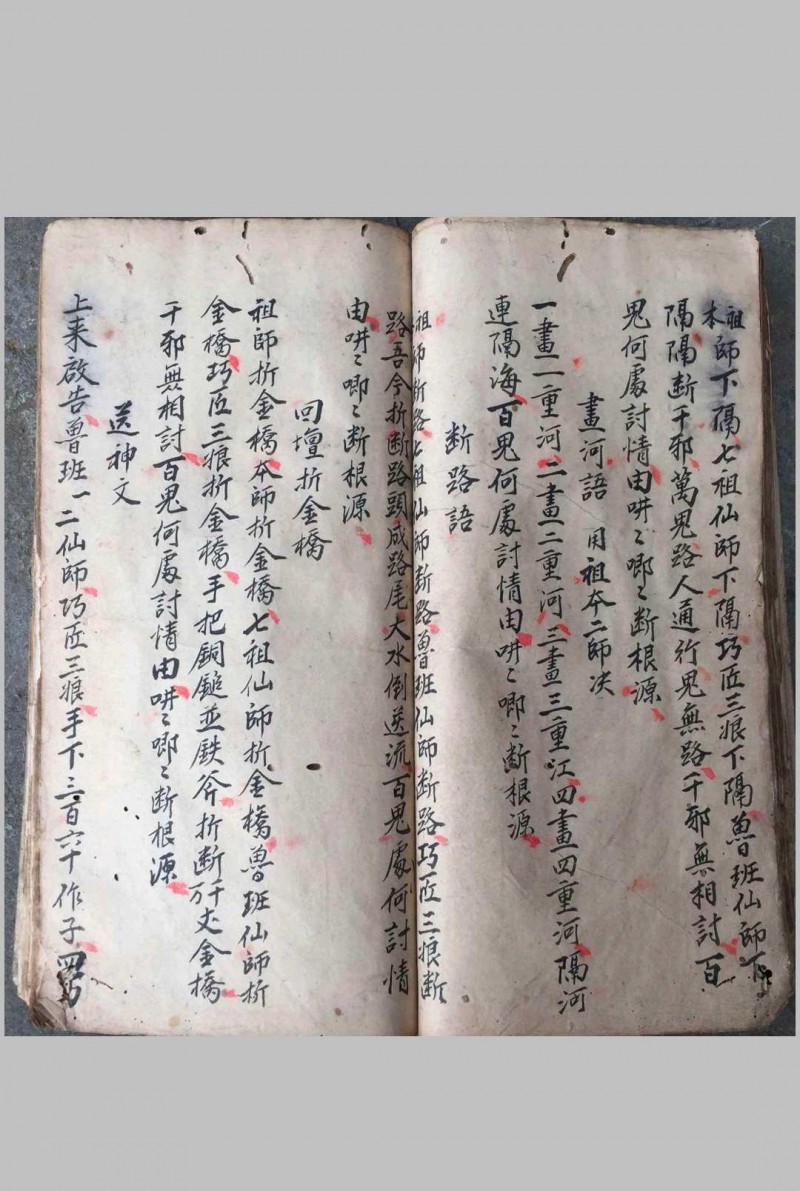 祖本師下隔七祖仙師下隔巧匠三痕下隔魯班仙師下
隔隔断千邪萬鬼路人通行鬼無路千邪無相討百
鬼何處討情由哄〻唧〻断根源
畫河語 用祖本二師决
一畫一重河二畫二重河三畫三重江四畫四重河隔河
連隔海百鬼何處討情由哄〻唧〻断根源
断路語
祖師断路七祖仙師断路魯班仙師断路巧匠三痕断
路吾今折断路頭成路尾大水倒送流百鬼處何討情
由哄〻唧〻断根源
回壇折金橋
祖師折金橋本師折金橋七祖仙師折金橋魯班仙師折
金橋巧匠三痕折金橋手把銅鎚並鉄斧折断万丈金橋
千邪無相討百鬼何處討情由哄〻唧〻断根源
送神文
上来啟告魯班一二仙師巧匠三痕手下三百六十作子